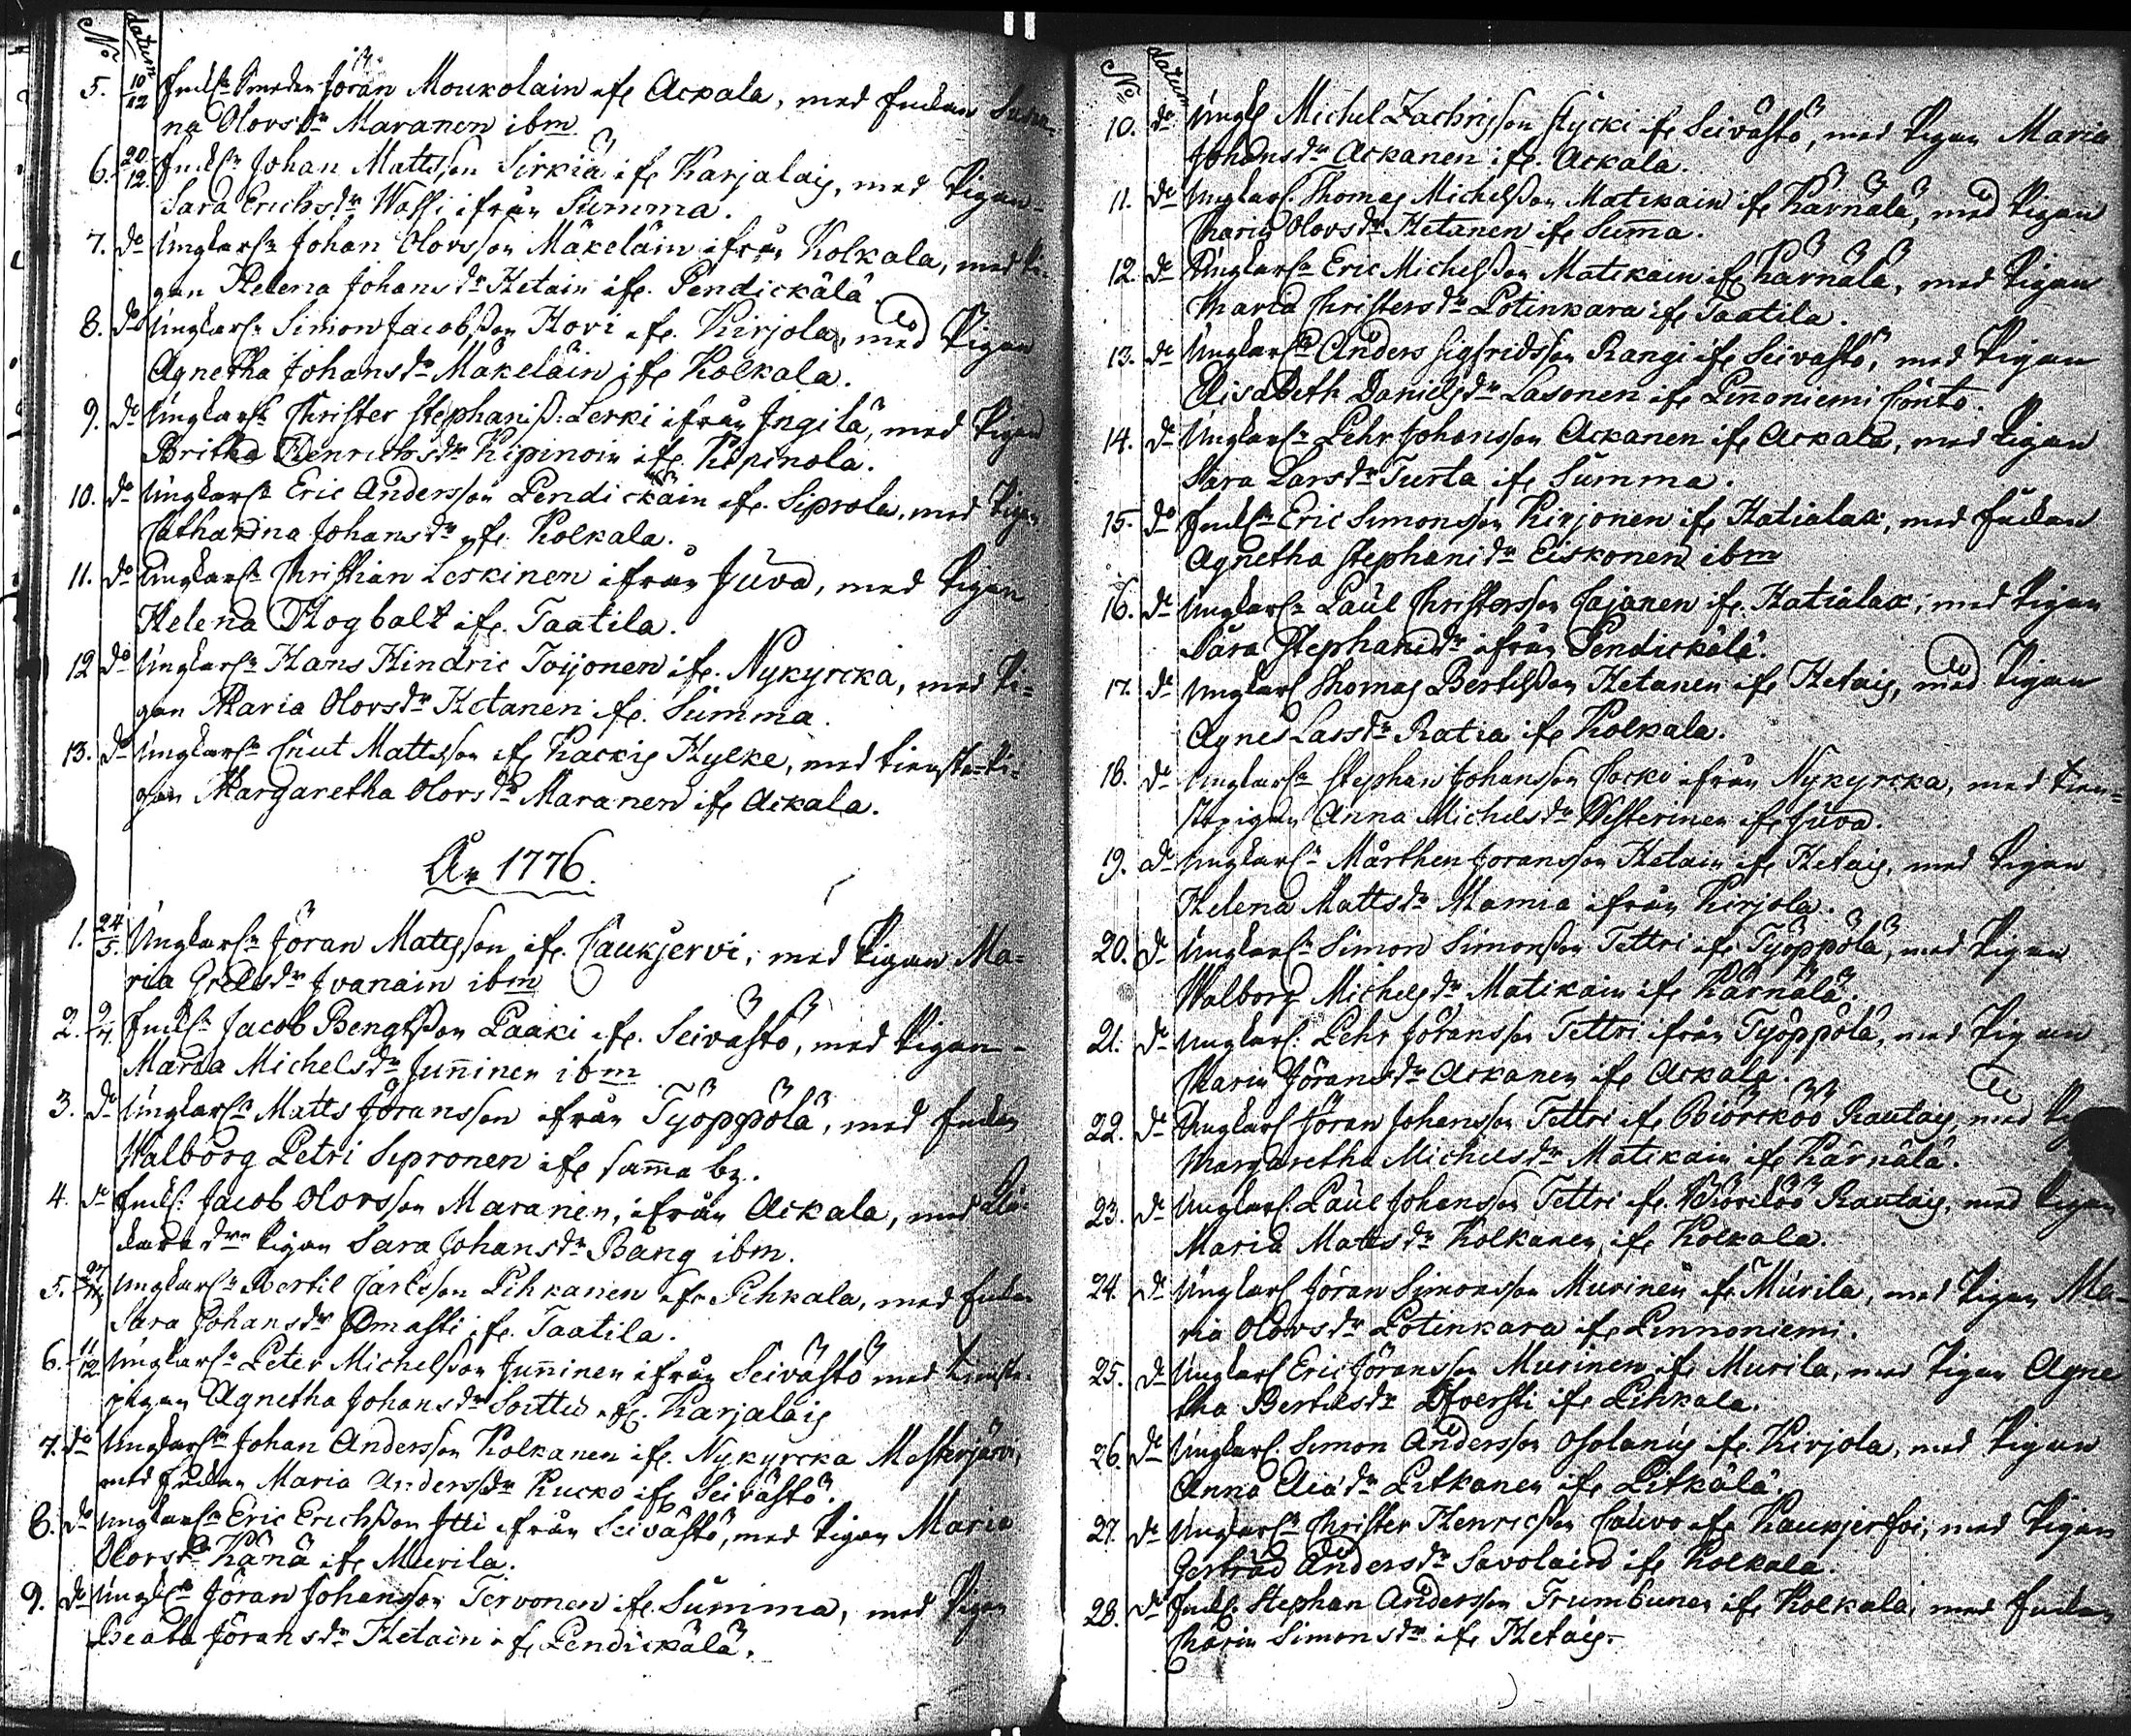 No datum
5. 10/12 Enkl:n Smeden Jöran Moukolain ifr Ackala, med Enkan Susa=
na Olovsdr Maranen ibm
6. 20/12. Enkl:n Johan Mattsson Sirkiä ifr Karjalais, med Pigan
Sara Erichsdr Wassi ifrån Summa.
7. do Ungkarln Johan Olovsson Mäkeläin ifrån Kolkala, med Pi-
gan Helena Johansdr Hetain ifr. Pendickälä.
8. do Ungkarln Simon Jacobsson Hovi ifr. Kirjola, med Pigan
Agnetha Johansdr Mäkeläin ifr Kolkala.
9. do Ungkarln Christer Stephaniss: Lerki ifrån Ingilä, med Pigan
Britha Henrichsdr Kipinoin ifr. Kipinola.
10. do Ungkarln Eric Andersson Pendickäin ifr. Siprola, med Pigan
Catharina Johansdr ifr. Kolkala.
11. do Ungkarln Christian Leskinen ifrån Juva, med Pigan
Helena Hogbalt ifr. Taatila.
12 do Ungkarln Hans Hindric Toijonen ifr. Nykyrcka, med Pi=
gan Maria Olovsdr Hetanen ifr. Summa.
13. do Ungkarln Cnut Mattsson ifr Kackis Hylke, med tienste-Pi=
gan Margaretha Olovsdr Maranen ifr Ackala.
År 1776.
1. 24/5. Ungkarln Jöran Mattsson ifr. Caukjervi, med Pigan Ma=
ria Grelsdr Ivanain ibm
2. Enkl:n Jacob Bengtsson Paaki ifr. Seivästö, med Pigan
Maria Michelsdr Juninen ibm
3. do Ungkarln Matts Joransson ifrån Työppölä, med Enkan
Walborg Petri Sipronen ifr sama by.
4. do Enkl: Jacob Olovsson Maranen, ifrån Ackala, med
dr Pigan Sara Johansdr Bång ibm.
5. Ungkarln Bertil Carlsson Pihkanen ifr Pihkala, med Enkan
Sara Johansdr ifr. Taatila.
6. 11/12. Ungkarln Peter Michelsson Juninen ifrån Seivästö med tienste-
pigan Agnetha Johansdr Soittu ifr. Karjalais
7. do Ungkarln Johan Andersson Kolkanen ifr. Nykyrcka Mesterjärvi,
med Enkan Maria Andersdr Kucko ifr Seivästö.
8. do Ungkarln Eric Erichsson Itti ifrån Seivästö, med Pigan Maria
Olovsdr Känä ifr Murila.
9. do Ungkln Jöran Johansson Tervonen ifr. Summa, med Pigan
Beata Joransdr Hetain ifr Pendickälä.
No datum
10. do Ungk Michel Zachrisson Kycki ifr Seivästö, med Pigan Maria
Johansdr Ackanen ifr. Ackala.
11. do Ungkarl. Thomas Michelsson Matikain ifr Kärnälä, med Pigan
Maria Olovsdr Hetanen ifr Suma.
12. do Ungkarln Eric Michelsson Matikain ifr Kärnälä, med Pigan
Maria Christersdr Potinkara ifr Taatila.
13. do Ungkarln Anders Sigfridsson Rangi ifr Seivästö, med Pigan
Elisabeth Danielsdr Lasonen ifr Pinoniemi Conto.
14. do Ungkarln Pehr Johansson Ackanen ifr Ackala, med Pigan
Sara Larsdr Turta ifr Summa.
15. do Enkln Eric Simonsson Kirjonen ifr Hatialax, med Enkan
Agnetha Stephanidr Eiskonen ibm
16. do Ungkarln Paul Christersson Cajanen ifr. Hatialax, med Pigan
Sara Stephanidr ifrån Pendickälä.
17. do Ungkarl Thomas Bertilsson Hetanen ifr Hetais, med Pigan
Agnes Larsdr Ratia ifr Kolkala.
18. do Ungkarln Stephan Johansson Cocko ifrån Nykyrcka, med tien=
stepigan Anna Michelsdr Westerinen ifr Juva.
19. do Ungkarln Mårthen Joransson Hetain ifr Hetais, med Pigan
Helena Mattsdr Mamia ifrån Kirjola.
20. do Ungkarln Simon Simonsson Tettri ifr Työppölä, med Pigan
Walborg Michelsdr Matikain ifr Kärnälä.
21. do Ungkarl: Pehr Joransson Tettri ifrån Työppölä, med Pigan
Maria Joransdr Ackanen ifr Ackala.
22. do Ungkarl Jöran Johansson Tettri ifr Biörcköö Rautais, med
Margaretha Michelsdr Matikain ifr Kärnälä.
23. do Ungkarl. Paul Johansson Tettri ifr. Biörcköö Rautais, med Pigan
Maria Mattsdr Kolkanen, ifr Kolkala.
24. do Ungkarl Jöran Simonsson Murinen ifr Murila, med Pigan Ma-
ria Olovsdr Potinkara ifr Pinnoniemi.
25. do Ungkarl Eric Joransson Murinen ifr Murila, med Pigan Agne
tha Bertilsdr ifr Pihkala.
26. do Ungkarl. Simon Andersson Osolanus ifr Kirjola, med Pigan
Anna dr Pitkanen ifr Pitkälä.
27. do Ungkarln Christer Henricsson Cauvo ifr Kaukjerfvi, med Pigan
Gertrud Andersdr Savolain ifr Kolkala.
28. do Enkl: Stephan Andersson Trumbunen ifr Kolkala, med Enkan
Maria Simonsdr ifr. Hetais.